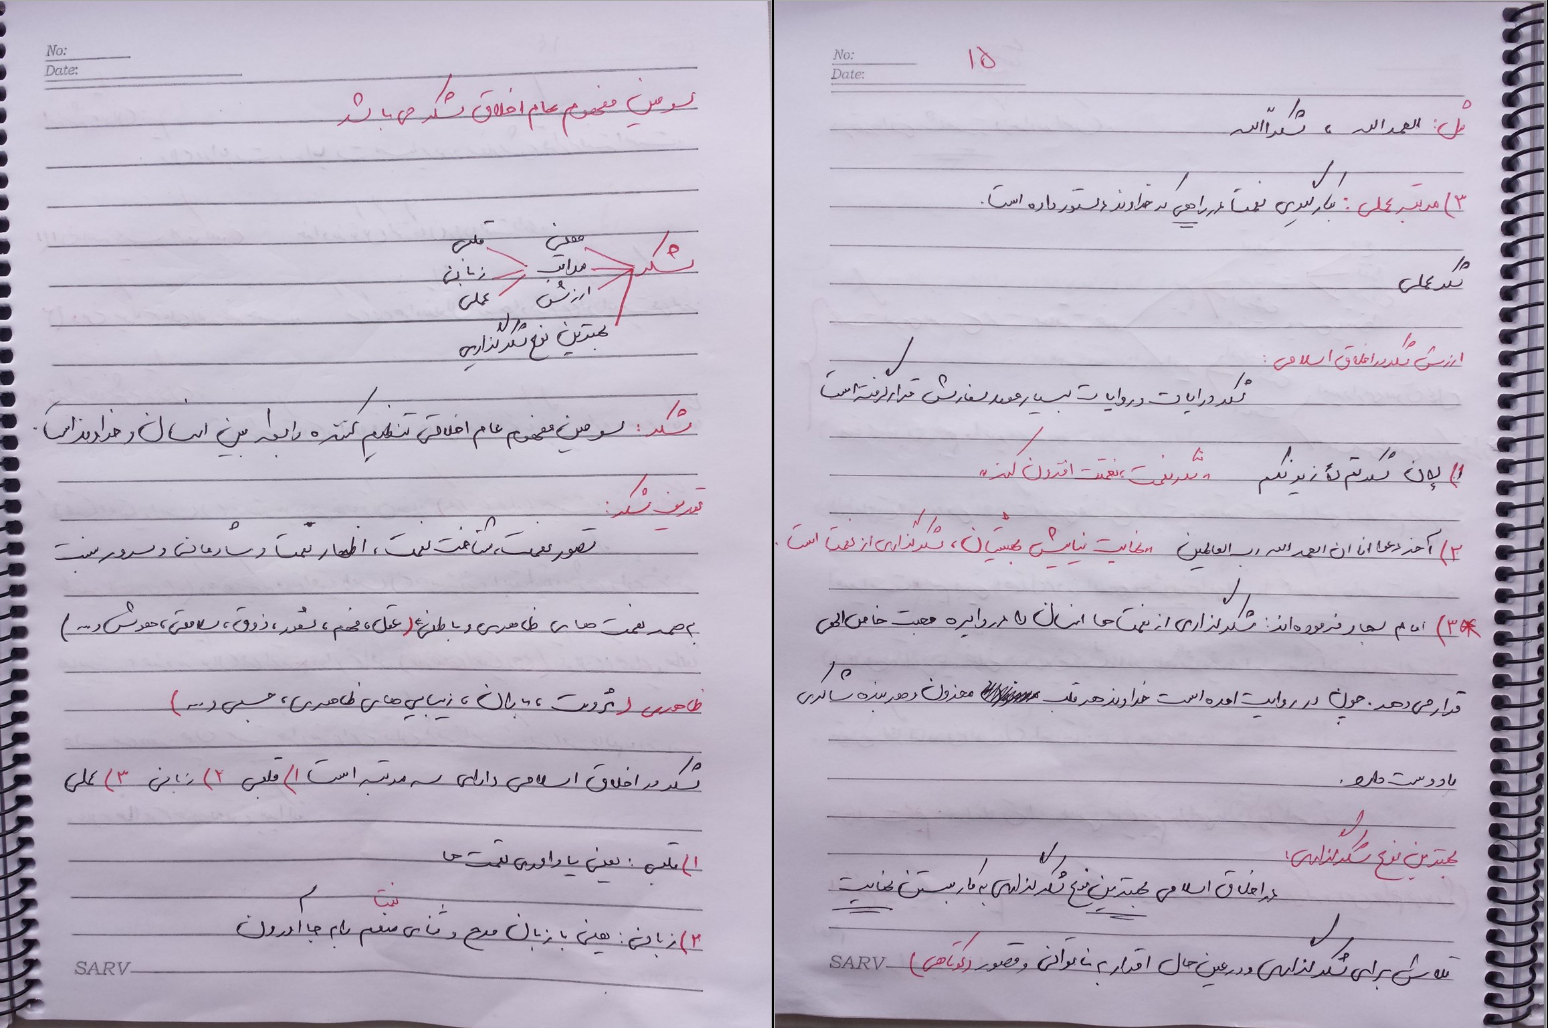 No:
Date:
سومین مفهوم عام اخلاقی شکر می باشد
شکر
معنی
مراتب
ارزش
بهترین نوع شکرگذاری
قلبی
زبانی
عملی
شکر: سومین مفهوم عام اخلاقی تنظیم کننده رابطه بین انسان و خداوند است.
تعریف شکر:
تصور نعمت، شناخت نعمت، اظهار نعمت و شادمانی و سرور نسبت
به همه نعمت های ظاهری و باطنی (عقل، فهم، شعور، ذوق، سلامتی، هوش و...)
ظاهری (ثروت، باران، زیبایی های ظاهری، حسی و...)
شکر در اخلاق اسلامی دارای سه مرتبه است ۱) قلبی ۲) زبانی ۳) عملی
۱) قلبی: یعنی یاداوری نعمت ها
نعمت
۲) زبانی: یعنی با زبان مدح و ثنای منعم را به جا آوردن
SARV
No:
Date:
۱۵
مثل: الحمدالله ، شکراًالله
۳) مرتبه عملی: بکارگیری نعمت در راهی که خداوند دستور داده است.
شکر عملی
ارزش شکر در اخلاق اسلامی:
شکر در ایات و روایات بسیار مورد سفارش قرار گرفته است
۱) لان شکرتم لأزیدنکم «شکر نعمت، نعمتت افزون کند»
۲) آخر دعوانا ان الحمدالله رب العالمین «نهایت نیایش بهشتیان، شکرگذاری از نعمت است.
*۳) امام سجاد فرموده اند: شکرگذاری از نعمت ها انسان را در دایره محبت خاص الهی
قرار می دهد. چون در روایت امده است خداوند هر قلب محزون و هر بنده شاکری
را دوست دارد.
بهترین نوع شکرگذاری:
در اخلاق اسلامی بهترین نوع شکرگذاری به کار بستن نهایت
تلاش برای شکرگذاری و در عین حال اقرار به ناتوانی و قصور (کوتاهی)
SARV